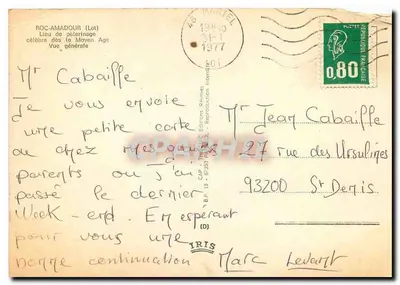 ROC-AMADOUR (Lot)
Lieu de pèlerinage
célèbre dès le Moyen Age
Vue générale
46 MARTEL
19H
31-1
1977
LOT
REPUBLIQUE FRANCAISE
0,80
Mr Cabaiffe
Je vous envoie
une petite carte
ou chez mes grands
parents ou j'ai
passé le dernier
Week-end. En espérant
pour vous une
bonne continuation Marc
Mr Jean Cabaiffe
27 rue des Ursulines
93200 St Denis
(D)
IRIS